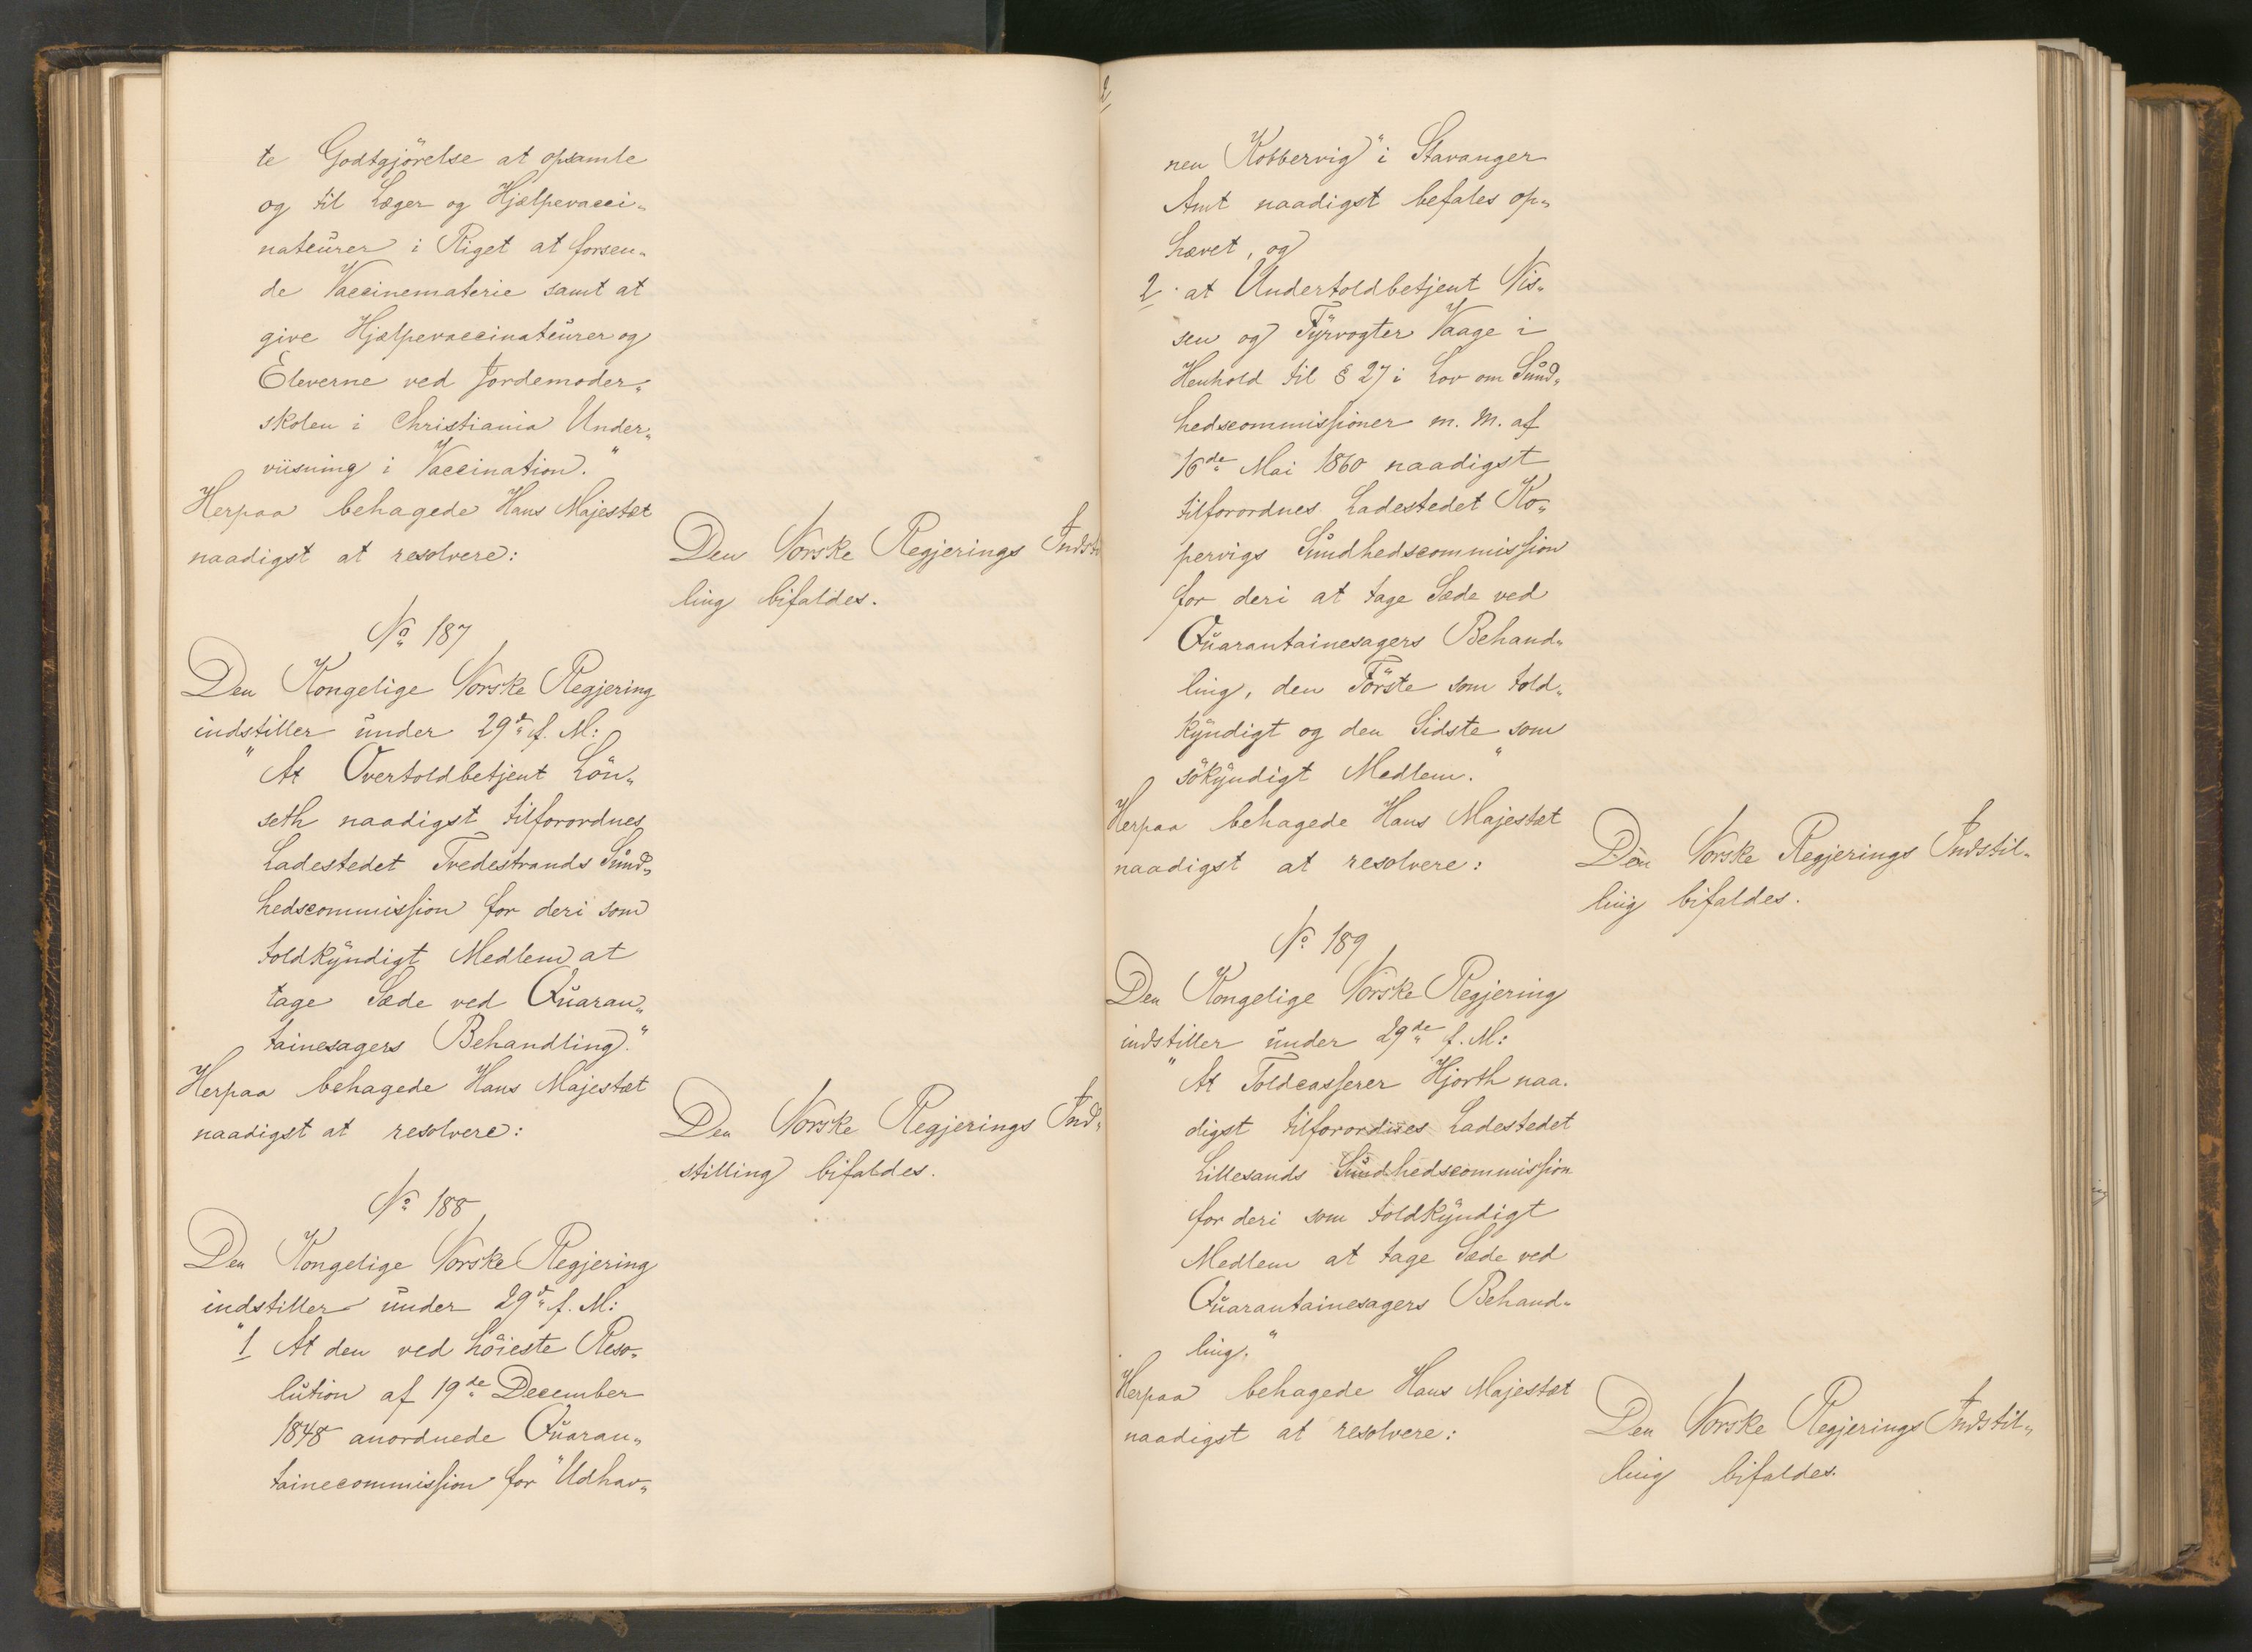 te Godtgjörelse at opsamle
og til Læger og Hjælpevacci„
nateurer i Riget at forsen„
de Vaccinematerie samt at
give Hjælpevaccinateurer og
Eleverne ved Jordemoder„
skolen i Christiania Under„
viisning i Vaccination."
Herpaa behagede Hans Majestæt
naadigst at resolvere:
Den Norske Regjerings Indstil
ling bifaldes.
No 187
Den Kongelige Norske Regjering
indstiller under 29de f. M:
"At Overtoldbetjent Lön„
seth naadigst tilforordnes
Ladestedet Tvedestrands Sund„
hedscommission for deri som
toldkyndigt Medlem at
tage Sæde ved Quaran„
tainesagers Behandling."
Herpaa behagede Hans Majestæt
naadigst at resolvere:
Den Norske Regjerings Ind„
stilling bifaldes.
No 188
Den Kongelige Norske Regjering
indstiller under 29de f. M:
"1 At den ved höieste Reso„
lution af 19de December
1848 anordnede Quaran„
tainecommission for "Udhav„
nen Kobbervig" i Stavanger
Amt naadigst befales op„
hævet, og
2 at Undertoldbetjent Nis„
sen og Fyrvogter Vaage i
Henhold til § 27 i Lov om Sund„
hedscommissioner m. m. af
16de Mai 1860 naadigst
tilforordnes Ladestedet Ko„
pervigs Sundhedscommission
for deri at tage Sæde ved
Quarantainesagers Behand„
ling, den Förste som told„
kyndigt og den Sidste som
sökyndigt Medlem."
Herpaa behagede Hans Majestæt
naadigst at resolvere:
Den Norske Regjerings Indstil„
ling bifaldes.
No 189
Den Kongelige Norske Regjering
indstiller under 29de f. M:
"At Toldcasserer Hjorth naa„
digst tilforordnes Ladestedet
Lillesands Sundhedscommission
for deri som toldkyndigt
Medlem at tage Sæde ved
Quarantainesagers Behand„
ling."
Herpaa behagede Hans Majestæt
naadigst at resolvere:
Den Norske Regjerings Indstil„
ling bifaldes.